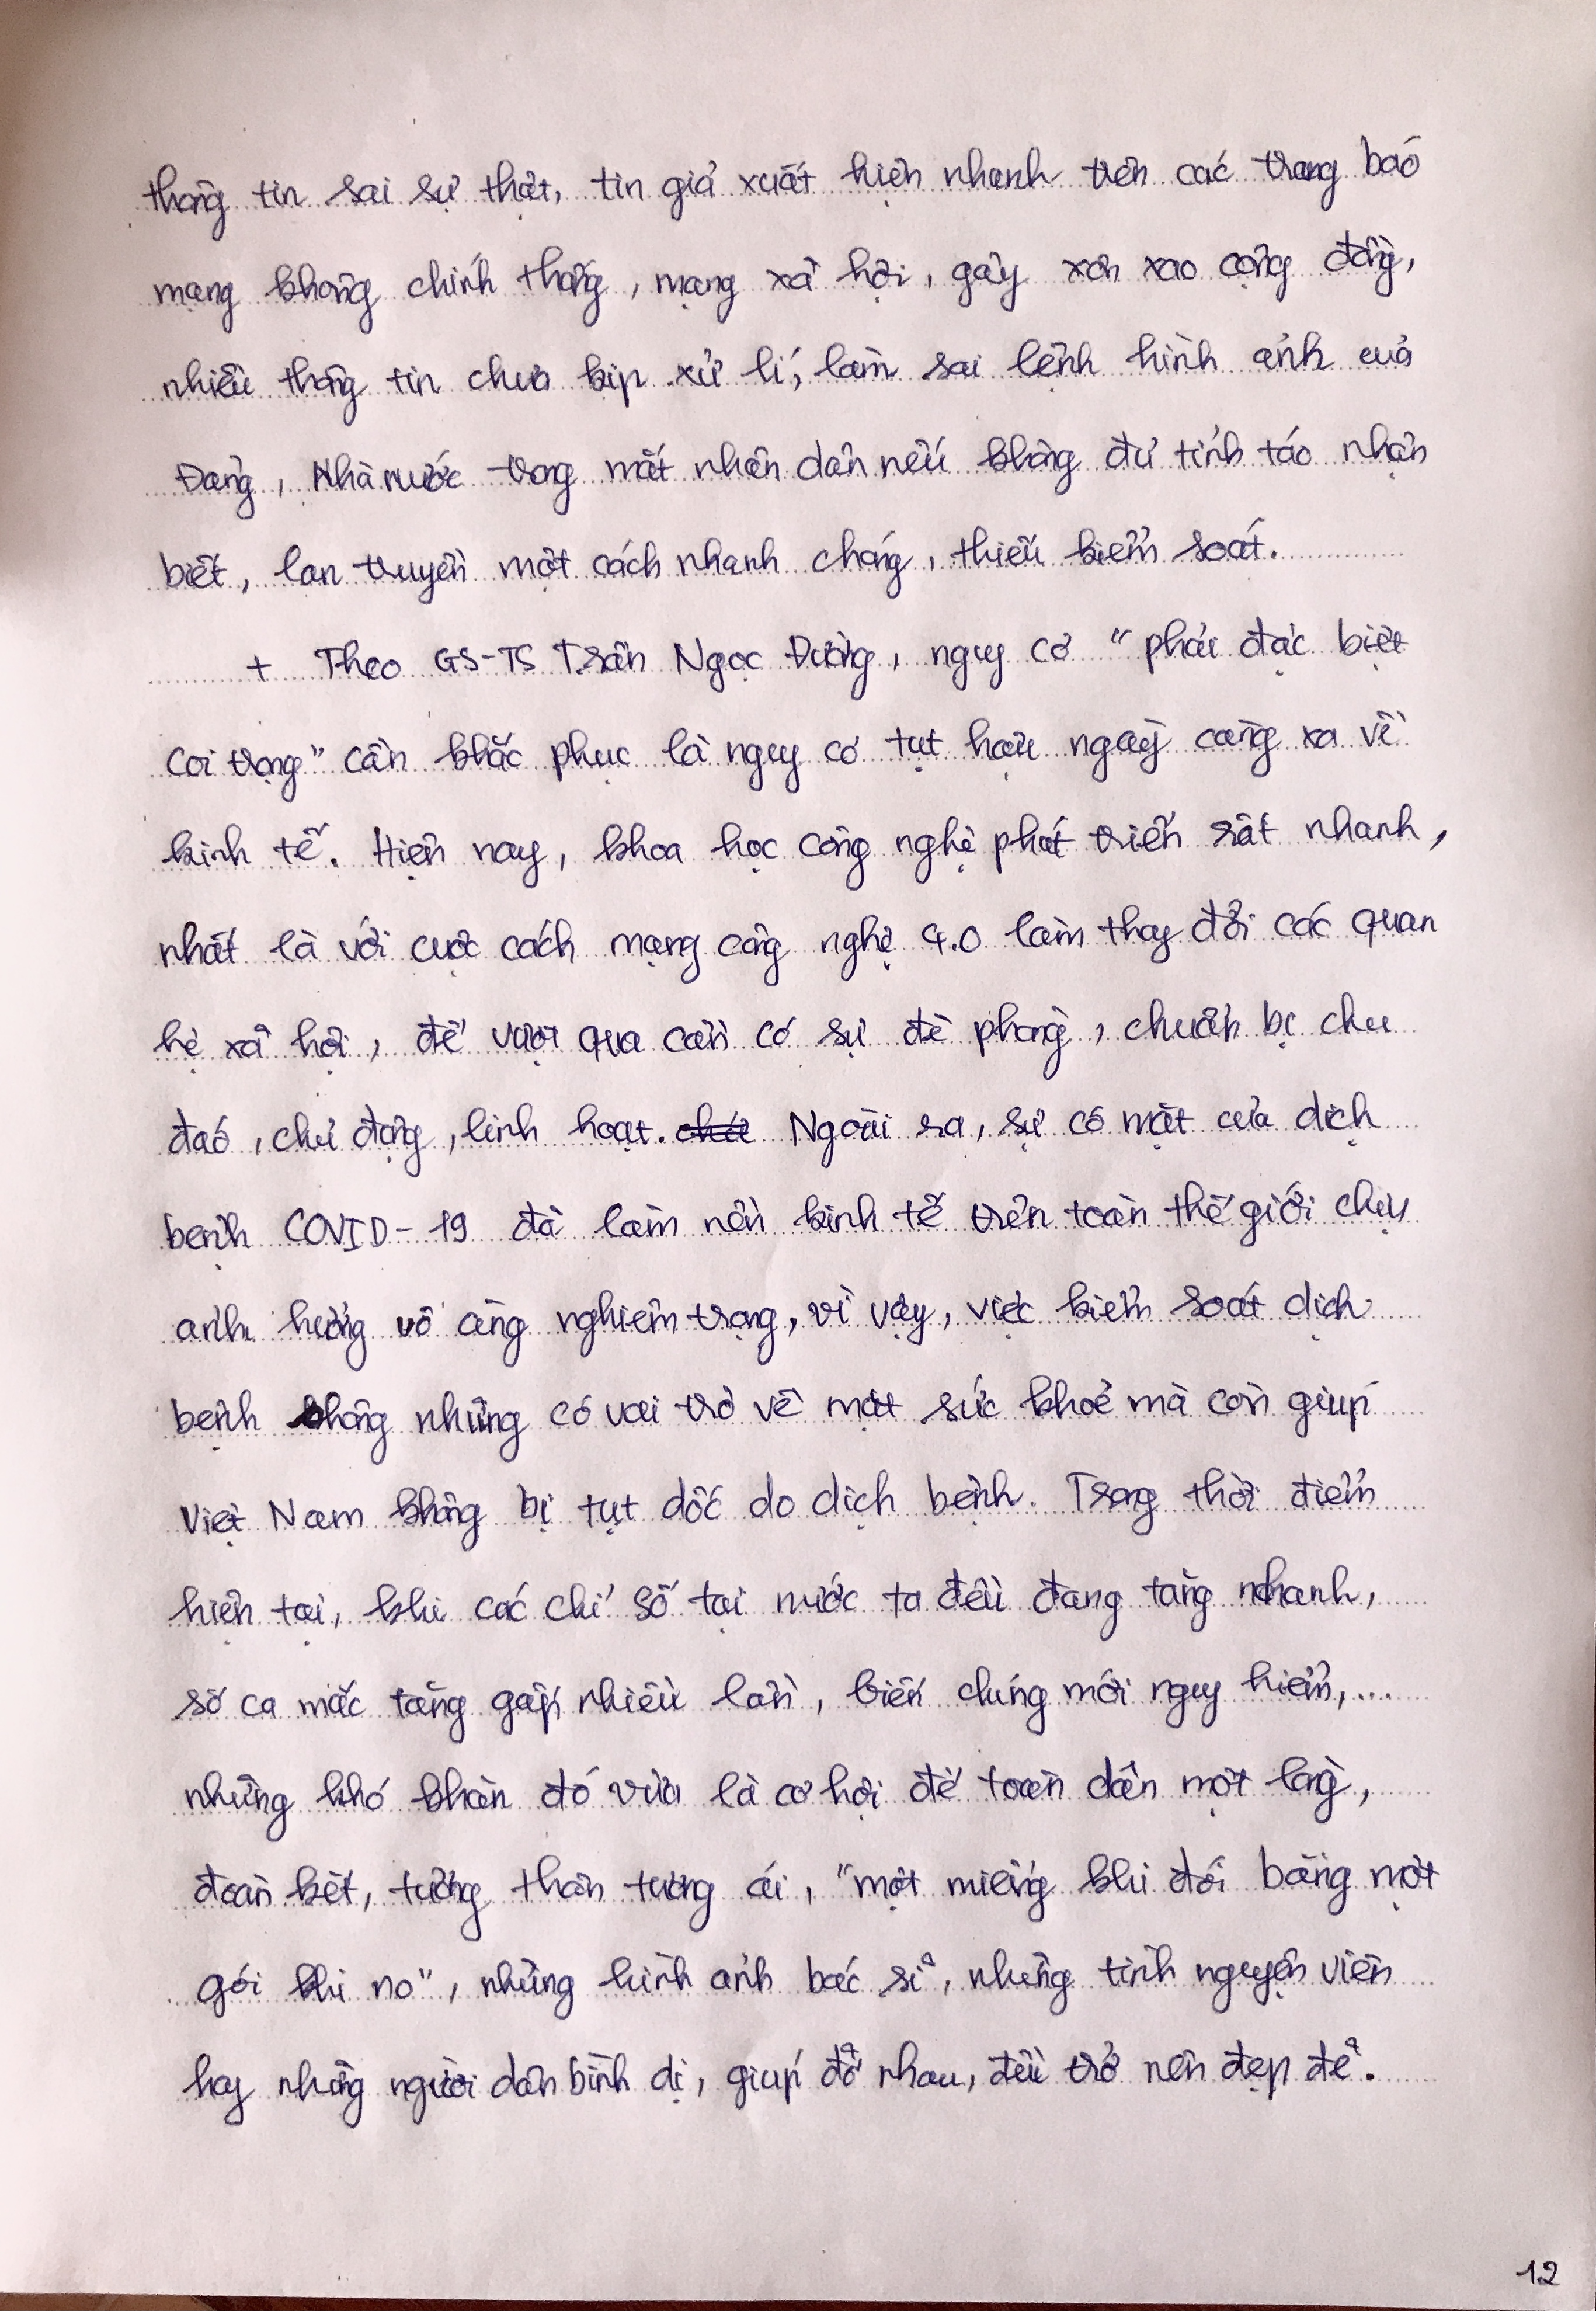 thông tin sai sự thật, tin giả xuất hiện nhanh trên các trang báo
mạng không chính thống, mạng xã hội, gây xôn xao cộng đồng,
nhiều thông tin chưa kịp xử lí, làm sai lệnh hình ảnh của
Đảng, Nhà nước trong mắt nhân dân nếu không đủ tỉnh táo nhận
biết, lan truyền một cách nhanh chóng, thiếu kiểm soát.
+ Theo GS-TS Trần Ngọc Đường, nguy cơ “phải đặc biệt
coi trọng” cần khắc phục là nguy cơ tụt hậu ngày càng xa về
kinh tế. Hiện nay, khoa học công nghệ phát triển rất nhanh,
nhất là với cuộc cách mạng công nghệ 4.0 làm thay đổi các quan
hệ xã hội, để vượt qua cần có sự đề phòng, chuẩn bị chu
đáo, chủ động, linh hoạt. Ngoài ra, sự có mặt của dịch
bệnh COVID-19 đã làm nền kinh tế trên toàn thế giới chịu
ảnh hưởng vô cùng nghiêm trọng, vì vậy, việc kiểm soát dịch
bệnh không những có vai trò về mặt sức khoẻ mà còn giúp
Việt Nam không bị tụt dốc do dịch bệnh. Trong thời điểm
hiện tại, khi các chỉ số tại nước ta đều đang tăng nhanh,
số ca mắc tăng gấp nhiều lần, biến chứng mới nguy hiểm,...
những khó khăn đó vừa là cơ hội để toàn dân một lòng,
đoàn kết, tương thân tương ái, “một miếng khi đói bằng một
gói khi no”, những hình ảnh bác sĩ, những tình nguyện viên
hay những người dân bình dị, giúp đỡ nhau, đều trở nên đẹp đẽ.
12